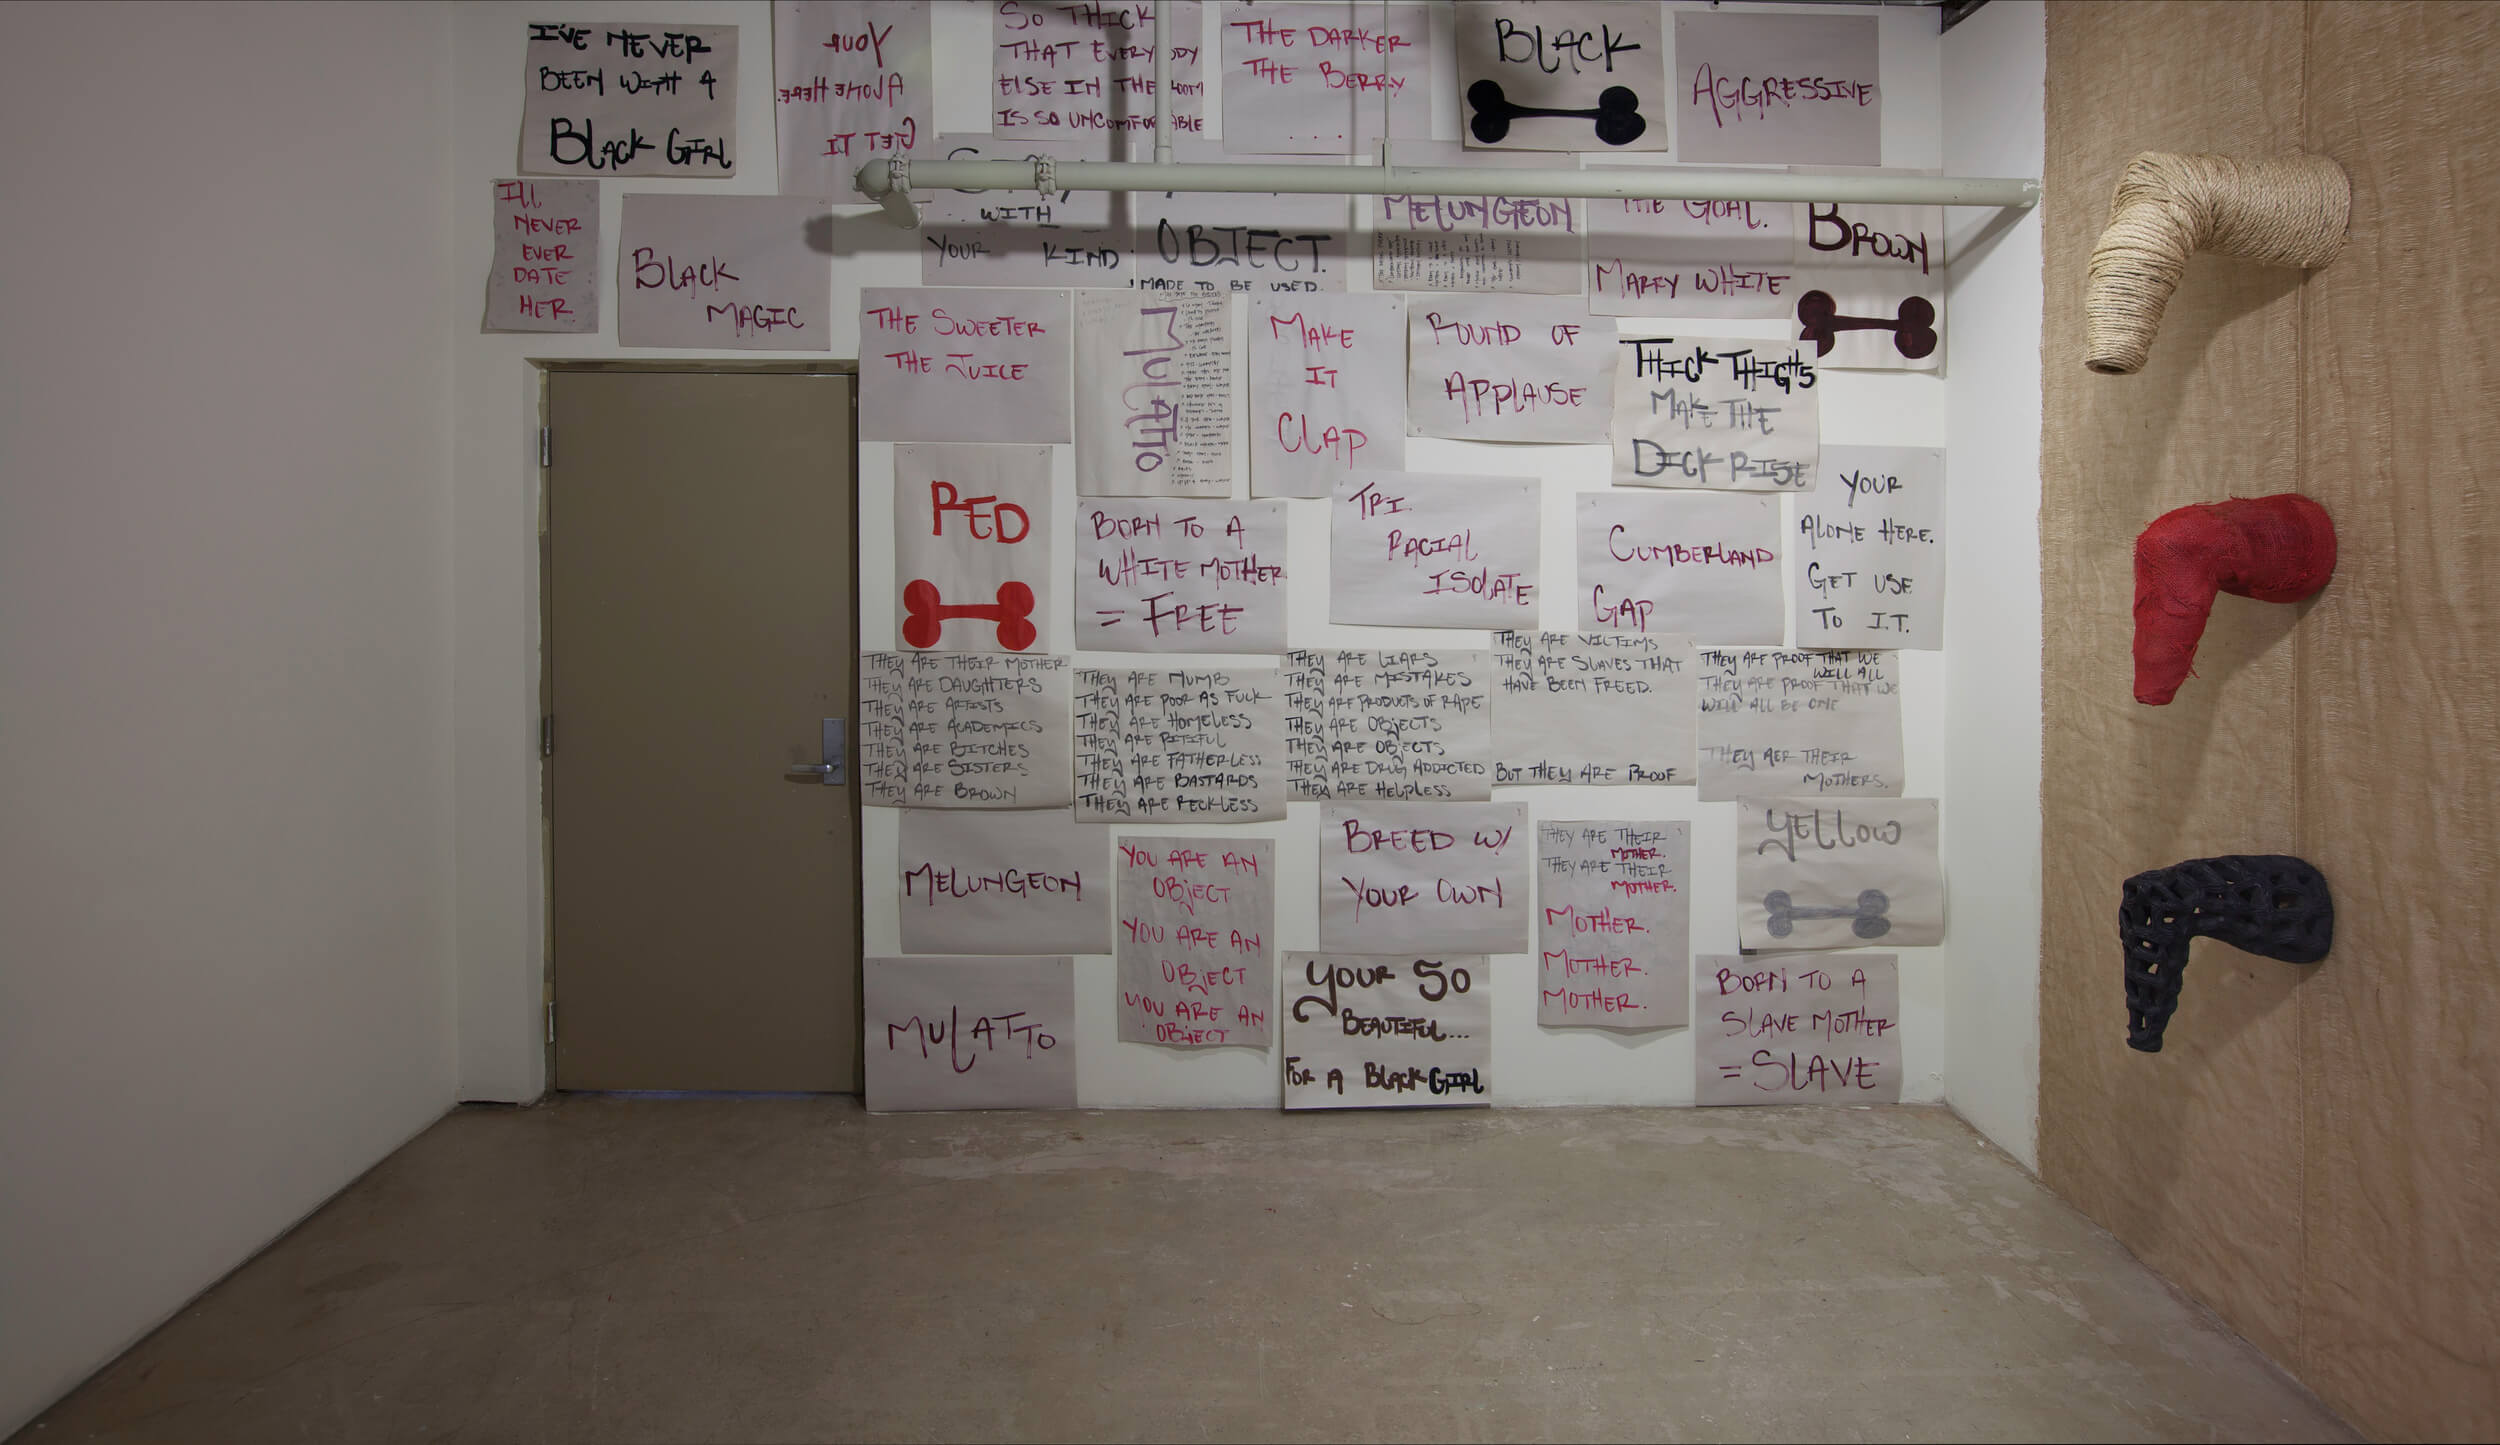 I'VE NEVER
BEEN WITH A
BLACK GIRL
YOUR
ALONE HERE.
GET IT
SO THICK
THAT EVERYBODY
ELSE IN THE ROOM
IS SO UNCOMFORTABLE
THE DARKER
THE BERRY
. . . .
BLACK
AGGRESSIVE
I'll
NEVER
EVER
DATE
HER.
BLACK
MAGIC
WITH
YOUR KIND
OBJECT.
MADE TO BE USED.
MELUNGEON
THE GOAL.
MARRY WHITE
BROWN
THE SWEETER
THE JUICE
MULATTO
MAKE
IT
CLAP
ROUND OF
APPLAUSE
THICK THIGHS
MAKE THE
DICK RISE
RED
BORN TO A
WHITE MOTHER
= FREE
TRI.
RACIAL
ISOLATE
CUMBERLAND
GAP
YOUR
ALONE HERE.
GET USE
TO I.T.
THEY ARE THEIR MOTHER
THEY ARE DAUGHTERS
THEY ARE ARTISTS
THEY ARE ACADEMICS
THEY ARE BITCHES
THEY ARE SISTERS
THEY ARE BROWN
THEY ARE NUMB
THEY ARE POOR AS FUCK
THEY ARE HOMELESS
THEY ARE PITIFUL
THEY ARE FATHERLESS
THEY ARE BASTARDS
THEY ARE RECKLESS
THEY ARE LIARS
THEY ARE MISTAKES
THEY ARE PRODUCTS OF RAPE
THEY ARE OBJECTS
THEY ARE OBJECTS
THEY ARE DRUG ADDICTED
THEY ARE HELPLESS
THEY ARE VICTIMS
THEY ARE SLAVES THAT
HAVE BEEN FREED.
BUT THEY ARE PROOF
THEY ARE PROOF THAT WE
WILL ALL
THEY ARE PROOF THAT WE
WILL ALL BE ONE
THEY AER THEIR
MOTHERS.
MELUNGEON
YOU ARE AN
OBJECT
YOU ARE AN
OBJECT
YOU ARE AN
OBJECT
BREED W/
YOUR OWN
THEY ARE THEIR
MOTHER.
THEY ARE THEIR
MOTHER.
MOTHER.
MOTHER.
MOTHER.
YELLOW
MULATTO
YOUR SO
BEAUTIFUL...
FOR A BLACK GIRL
BORN TO A
SLAVE MOTHER
= SLAVE